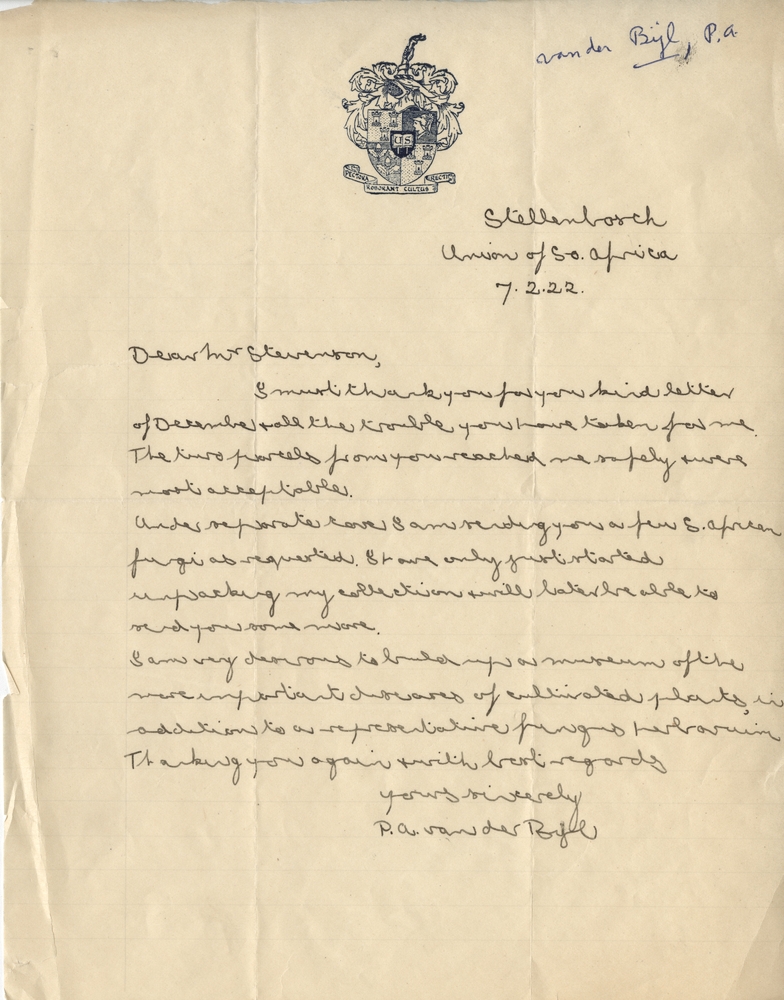 van der Bijl, P.A.
PECTORA
ROBORANT CULTUS
RECTI
US
Stellenbosch
Union of So. Africa
7.2.22.
Dear Mr Stevenson,
I must thank you for you kind letter
of December & all the trouble you have taken for me.
The two parcels from you reached me safely & were
most acceptable.
Under separate cover I am sending you a few S. African
fungi as requested. I have only just started
unpacking my collection & will later be able to
send you some more.
I am very desirous to build up a museum of the
more important diseases of cultivated plants, in
addition to a representative fungus herbarium
Thanking you again & with best regards
yours sincerely
P.A. van der Bijl